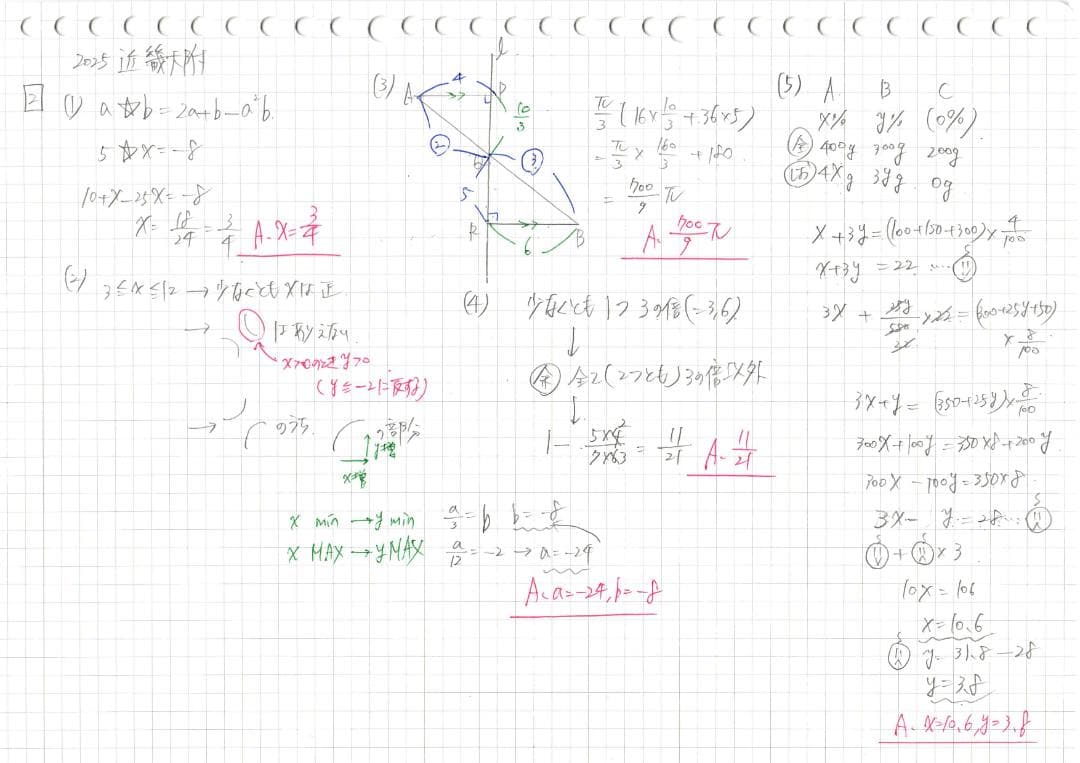 2025 近畿大附
2
(1) a☆b=2a+b-a²b.
5☆x=-8
10+x-25x=-8
x= 18/24 = 3/4 A. x=3/4
(2) 3≦x≦12 → 少なくともxは正
→ はありえない
x>0のときy>0
(y≦-2に反する)
→ のうち の部分
y増
x増
x min → y min a/3=b b=-8
x MAX → y MAX a/12=-2 → a=-24
A. a=-24, b=-8
(3) A 4 P l
10/3
② ③
5
R 6 B
π/3 (16×10/3+36×5)
=π/3 × 160/3 + 180
= 700/9 π
A. 700/9 π
(4) 少なくとも1つ3の倍(=3,6)
↓
余 全て(2つとも)3の倍以外
↓
1- 5×4²/7×63 = 11/21 A. 11/21
(5) A B C
x% y% (0%)
全 400g 300g 200g
しお 4xg 3yg 0g
x+3y=(100+150+300)×4/100
x+3y =22
3x +
3x+y= (350+25y)×8/100
300x+100y=350×8+200y
300x-100y=350×8
3x- y=28
×3
10x=106
x=10.6
y= 31.8-28
y=3.8
A. x=10.6, y=3.8